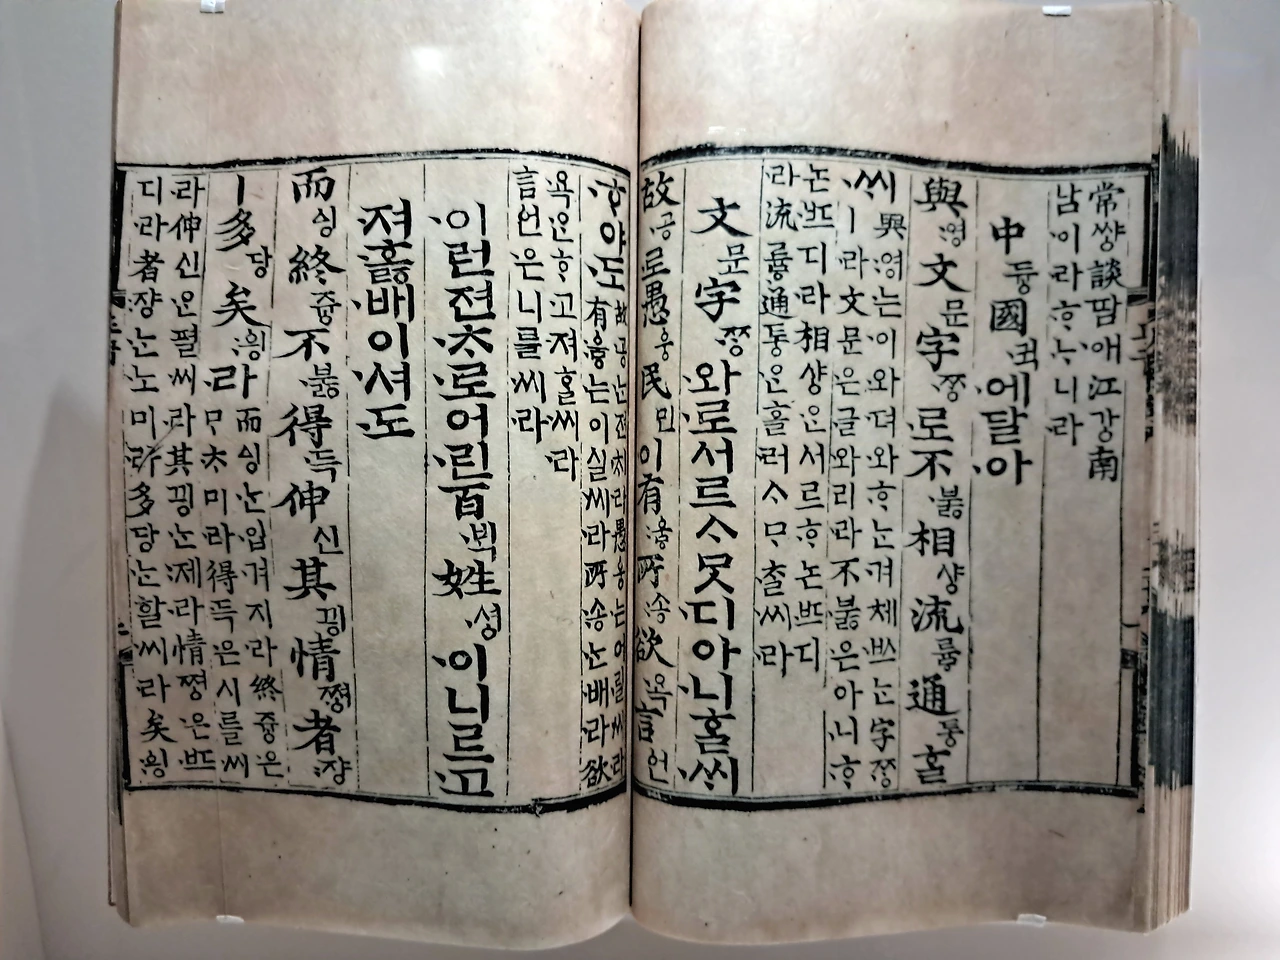 常썅談땀애江강南
남이라ᄒᆞᄂᆞ니라
中듀ᇰ國귁에달아
與영文문字ᄍᆞᆼ로不부ᇙ相샤ᇰ流류ᇢ通토ᇰᄒᆞᆯ
ᄊᆡ與영는이와뎌와ᄒᆞᄂᆞᆫ겨체ᄡᅳᄂᆞᆫ字ᄍᆞᆼ
ㅣ라文문은글와리라不부ᇙ은아니ᄒᆞ
논ᄠᅳ디라相샤ᇰᄋᆞᆫ서르ᄒᆞ논ᄠᅳ디
라流류ᇢ通토ᇰᄋᆞᆫ흘러ᄉᆞᄆᆞᄎᆞᆯ씨라
文문字ᄍᆞᆼ와로서르ᄉᆞᄆᆞᆺ디아니ᄒᆞᆯᄊᆡ
故공로愚ᅌᅮᆼ民민이有우ᇢ所송欲욕言언
ᄒᆞ야도故공ᄂᆞᆫ젼ᄎᆡ라愚ᅌᅮᆼ는어릴씨라
有우ᇢ는이실씨라所송ᄂᆞᆫ배라欲
욕ᄋᆞᆫᄒᆞ고져ᄒᆞᆯ씨라
言언은니를씨라
이런젼ᄎᆞ로어린百ᄇᆡᆨ姓셔ᇰ이니르고
져호ᇙ배이셔도
而ᅀᅵᆼ終쥬ᇰ不부ᇙ得득伸신其끵情쪄ᇰ者쟝
ㅣ多당矣ᅌᅴᆼ라而ᅀᅵᆼᄂᆞᆫ입겨지라終쥬ᇰ은
ᄆᆞᄎᆞ미라得득은시를씨
라伸신ᄋᆞᆫ펼씨라其끵ᄂᆞᆫ제라情쪄ᇰ은ᄠᅳ
디라者쟝ᄂᆞᆫ노미라多당ᄂᆞᆫ할씨라矣ᅌᅴᆼ